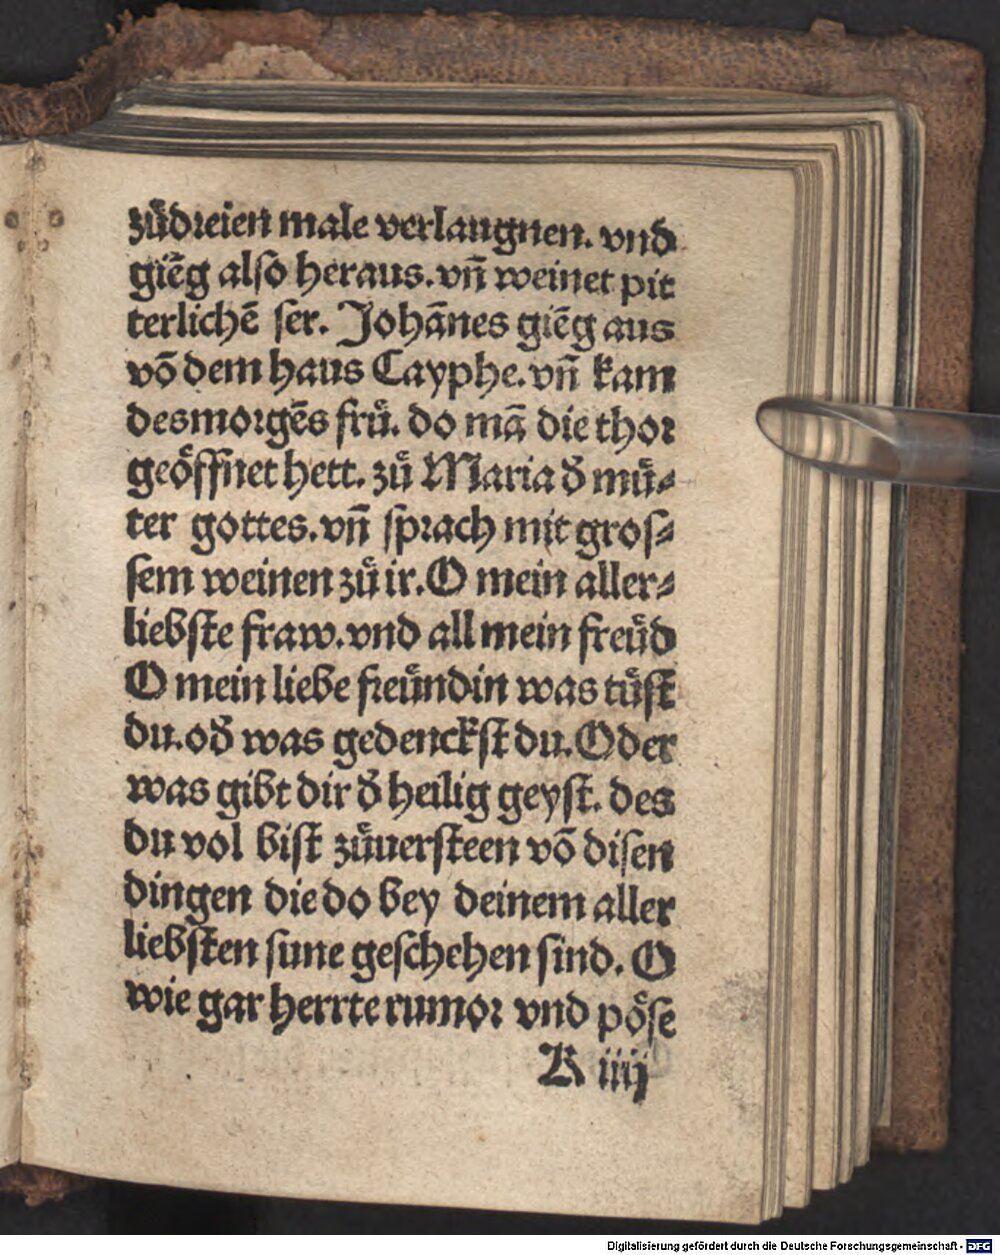 zuͤdreien male verlaugnen. vnd
giẽg also heraus. vñ weinet pit
terlichẽ ser. Johãnes giẽg aus
võ dem haus Cayphe. vñ kam
desmorgẽs fruͤ. do mã die thor
geoͤffnet hett. zuͤ Maria d̕ muͤ⸗
ter gottes. vñ sprach mit gros⸗
sem weinen zuͤ ir. O mein aller⸗
liebste fraw. vnd all mein freuͤd
O mein liebe freuͤndin was tuͤst
du. od̕ was gedenckst du. Oder
was gibt dir d̕ heilig geyst. des
du vol bist zuͤuersteen võ disen
dingen die do bey deinem aller
liebsten sune geschehen sind. O
wie gar herrte rumor vnd poͤse
K iiij
Digitalisierung gefördert durch die Deutsche Forschungsgemeinschaft - DFG